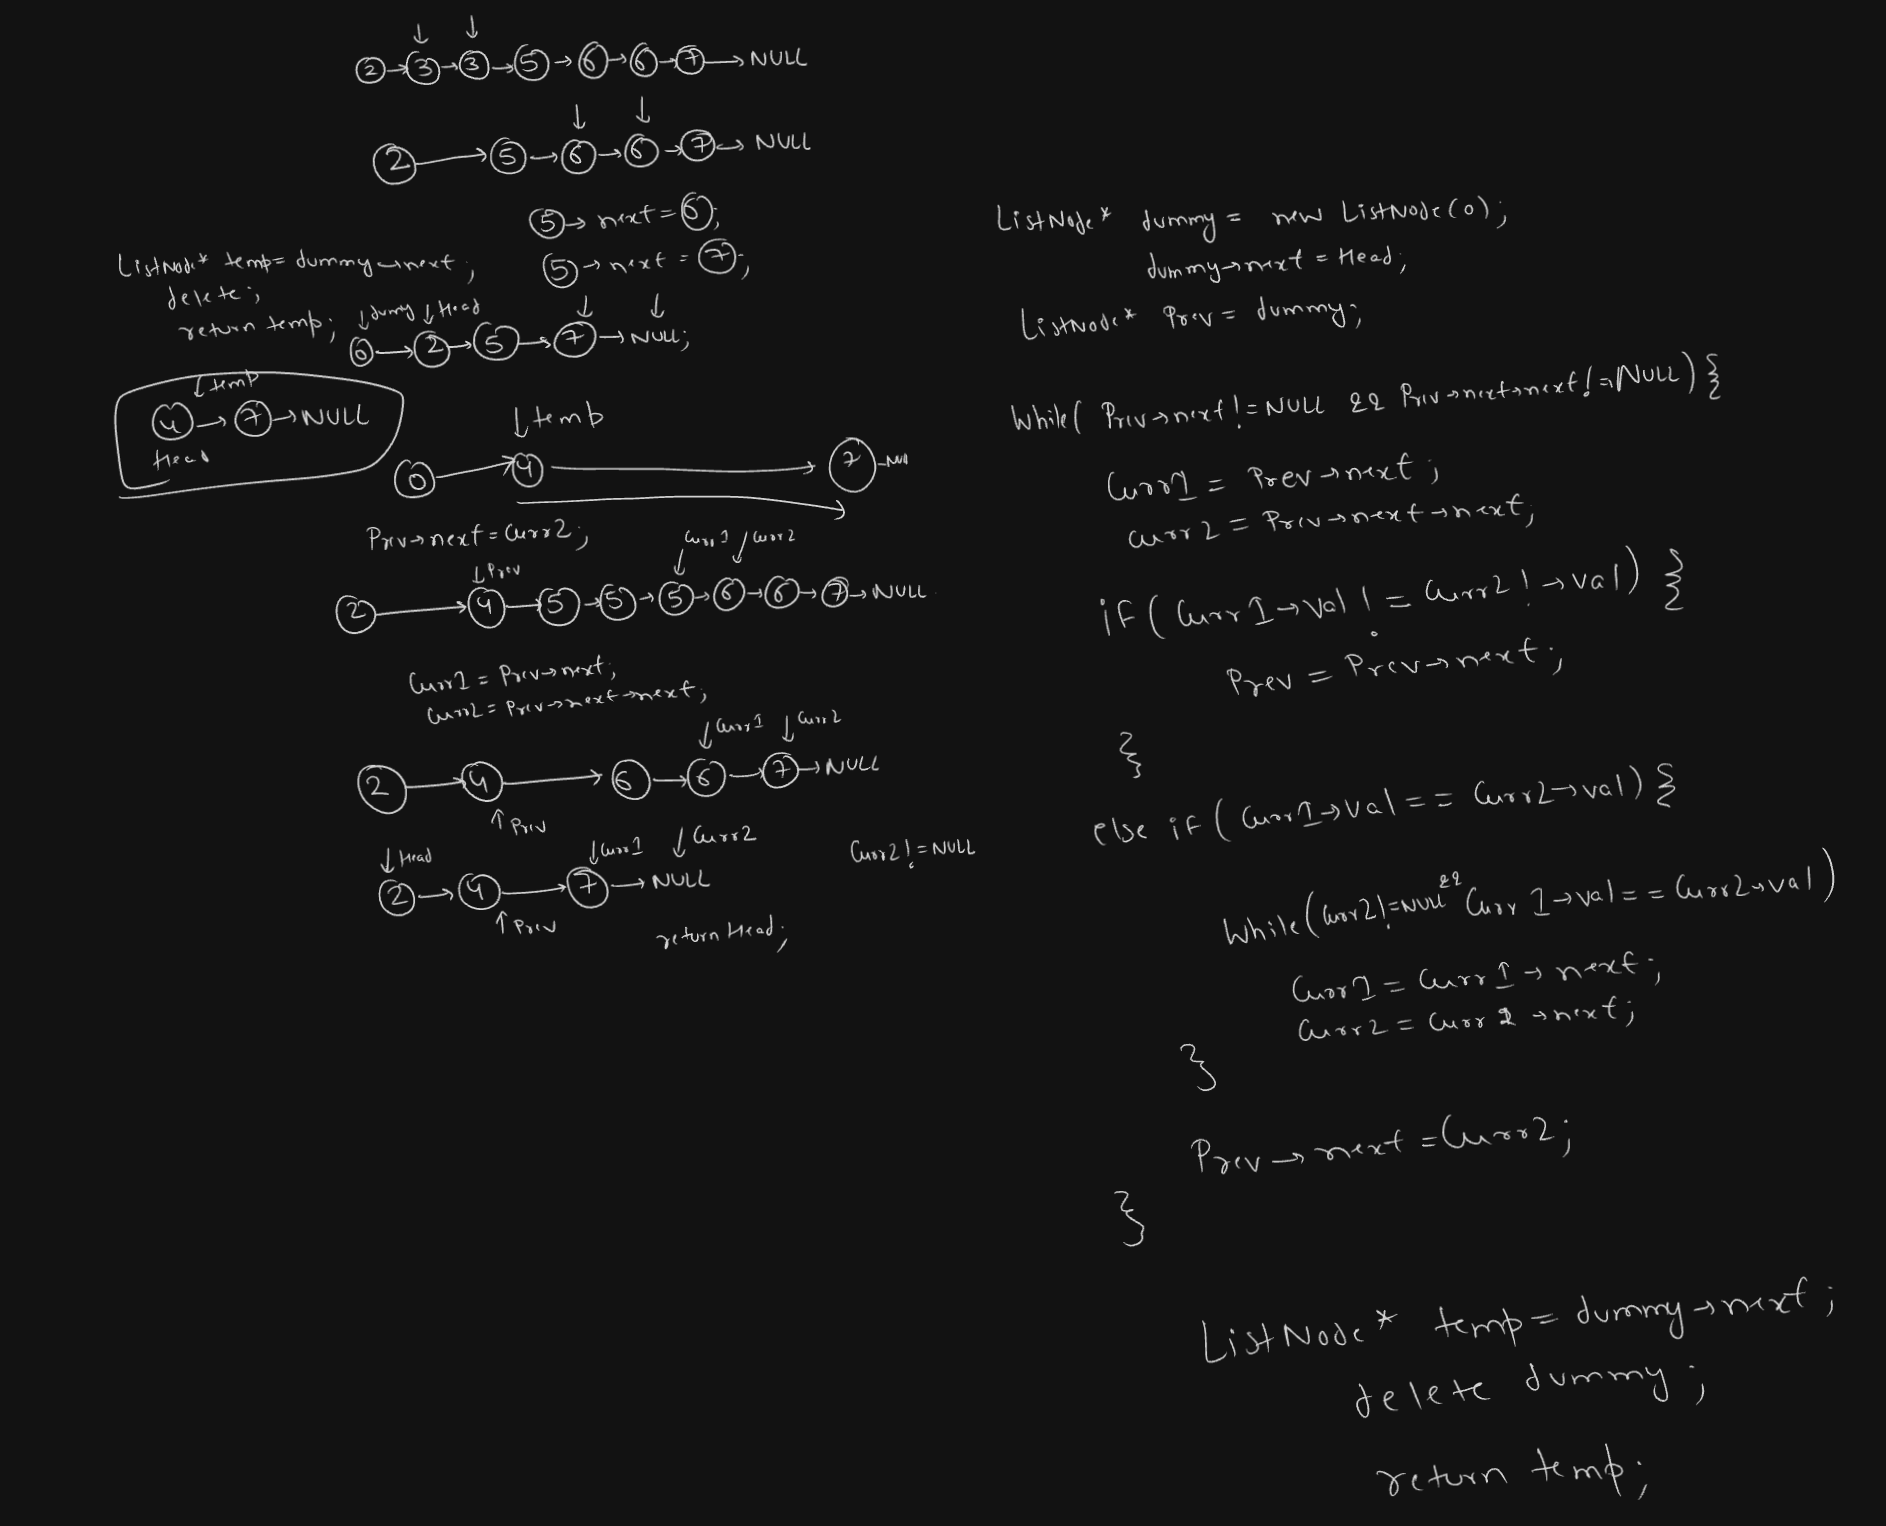 2 → 3 → 3 → 5 → 6 → 6 → 7 → NULL
2 → 5 → 6 → 6 → 7 → NULL
5 → next = 6;
5 → next = 7;
ListNode* temp = dummy → next;
delete;
return temp;
↓ dumy ↓ Head
0 → 2 → 5 → 7 → NULL;
↓ temp
4 → 7 → NULL
Head
↓ temp
0 → 4 → 7 - Null
Prev → next = Curr2;
↓ Prev
↓ Curr1 ↓ Curr2
2 → 4 → 5 → 5 → 5 → 6 → 6 → 7 → NULL
Curr1 = Prev → next;
Curr2 = Prev → next → next;
↓ Curr1 ↓ Curr2
2 → 4 → 6 → 6 → 7 → NULL
↑ Prev
↓ Head ↓ Curr1 ↓ Curr2
2 → 4 → 7 → NULL
↑ Prev
Curr2 != NULL
return Head;
ListNode* dummy = new ListNode(0);
dummy → next = Head;
ListNode* Prev = dummy;
While( Prev → next != NULL && Prev → next → next != NULL) {
Curr1 = Prev → next;
curr2 = Prev → next → next;
if( Curr1 → val != Curr2! → val) {
Prev = Prev → next;
}
else if( Curr1 → val == Curr2 → val) {
While( Curr2 != NULL && Curr1 → val == Curr2 → val)
Curr1 = Curr1 → next;
Curr2 = Curr2 → next;
}
Prev → next = Curr2;
}
ListNode* temp = dummy → next;
delete dummy;
return temp;